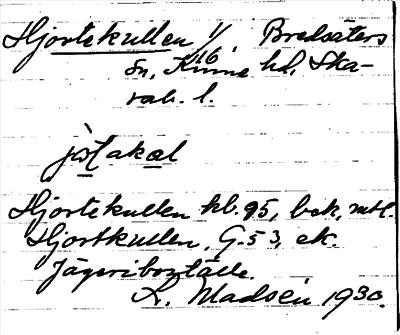 Hjortekullen 1/16, Bredsäters
sn, Kinne hd, Ska-
rab. l.
Hjortekullen kl. 95, bek, mtl.
Hjortkullen, G. 53, ek.
Jägeriboställe.
K. Madsén 1930.